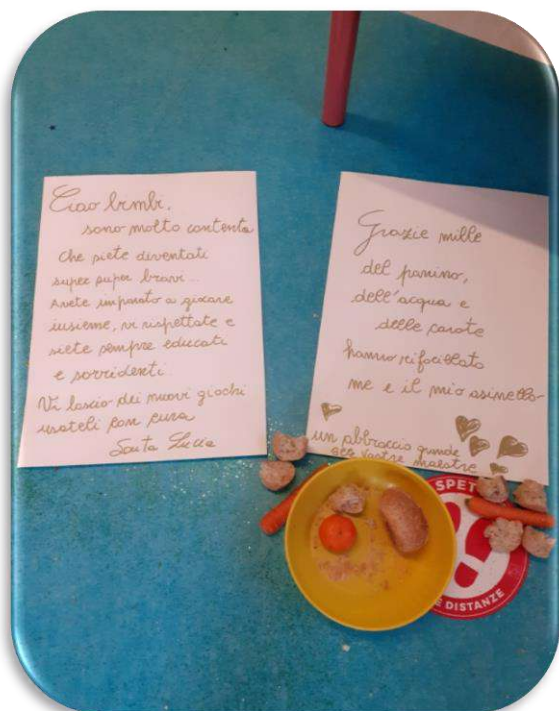 Ciao bimbi,
sono molto contenta
che siete diventati
super super bravi...
Avete imparato a giocare
insieme, vi rispettate e
siete sempre educati
e sorridenti.
Vi lascio dei nuovi giochi
usateli con cura
Santa Lucia
Grazie mille
del panino,
dell'acqua e
delle carote
hanno rifocillato
me e il mio asinello
un abbraccio grande
alle vostre maestre
SPET
E DISTANZE